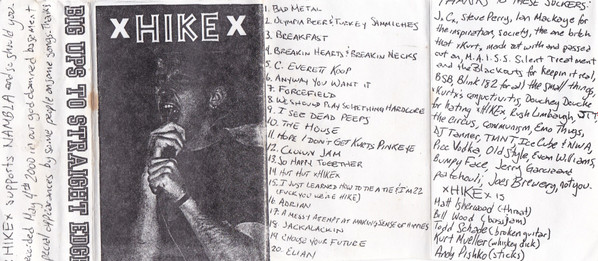 xHIKEx supports NAMBLA and so should you.
recorded May 4th 2000 in our god damned basement
special appearances by some people on some songs. thanks
BIG UPS TO STRAIGHT EDGE
X HIKE X
1. BAD METAL
2. OLYMPIA BEER & TURKEY SAMMICHES
3. BREAKFAST
4. BREAKIN HEARTS & BREAKIN NECKS
5. C. EVERETT KOOP
6. ANYWAY YOU WANT IT
7. FORCEFIELD
8. WE SHOULD PLAY SOMETHING HARDCORE
9. I SEE DEAD PEEPS
10. THE HOUSE
11. HOPE I DON'T GET KURTS PINKEYE
12. CLOWN JAM
13. SO HAPPY TOGETHER
14. HUT HUT xHIKEx
15. I JUST LEARNED HOW TO TIE A TIE & I'M 22
(FUCK YOU WE'RE HIKE)
16. ADRIAN
17. A MESSY ATTEMPT AT MAKING SENSE OF HIPPIES
18. JACKALACKIN
19. CHOOSE YOUR FUTURE
20. ELIAN
THANKS TO THESE SUCKERS:
J.C., Steve Perry, Ian Mackaye for
the inspiration, society, the one bitch
that xKurtx made out with and passed
out on, M.A.I.S.S. Silent Treatment
and the Blackouts for keepin it real,
BSB, Blink 182 for all the small things,
Douchey Douche
for hating xHIKEx Rush Limbaugh, JTT,
the circus, communism, Emo Thugs,
DJ Tanner, TMNT, Ice Cube & NWA,
Vodka, Old Style, Evan Williams,
Bumpy Face, Jerry Garcia and
patchouli, Joes Brewery, not you.
xHIKEx is
Matt Isherwood (throat)
Bill Wood (bass jam)
Todd Schade (broken guitar)
Kurt Mueller (whiskey dick)
Andy Pishko (sticks)